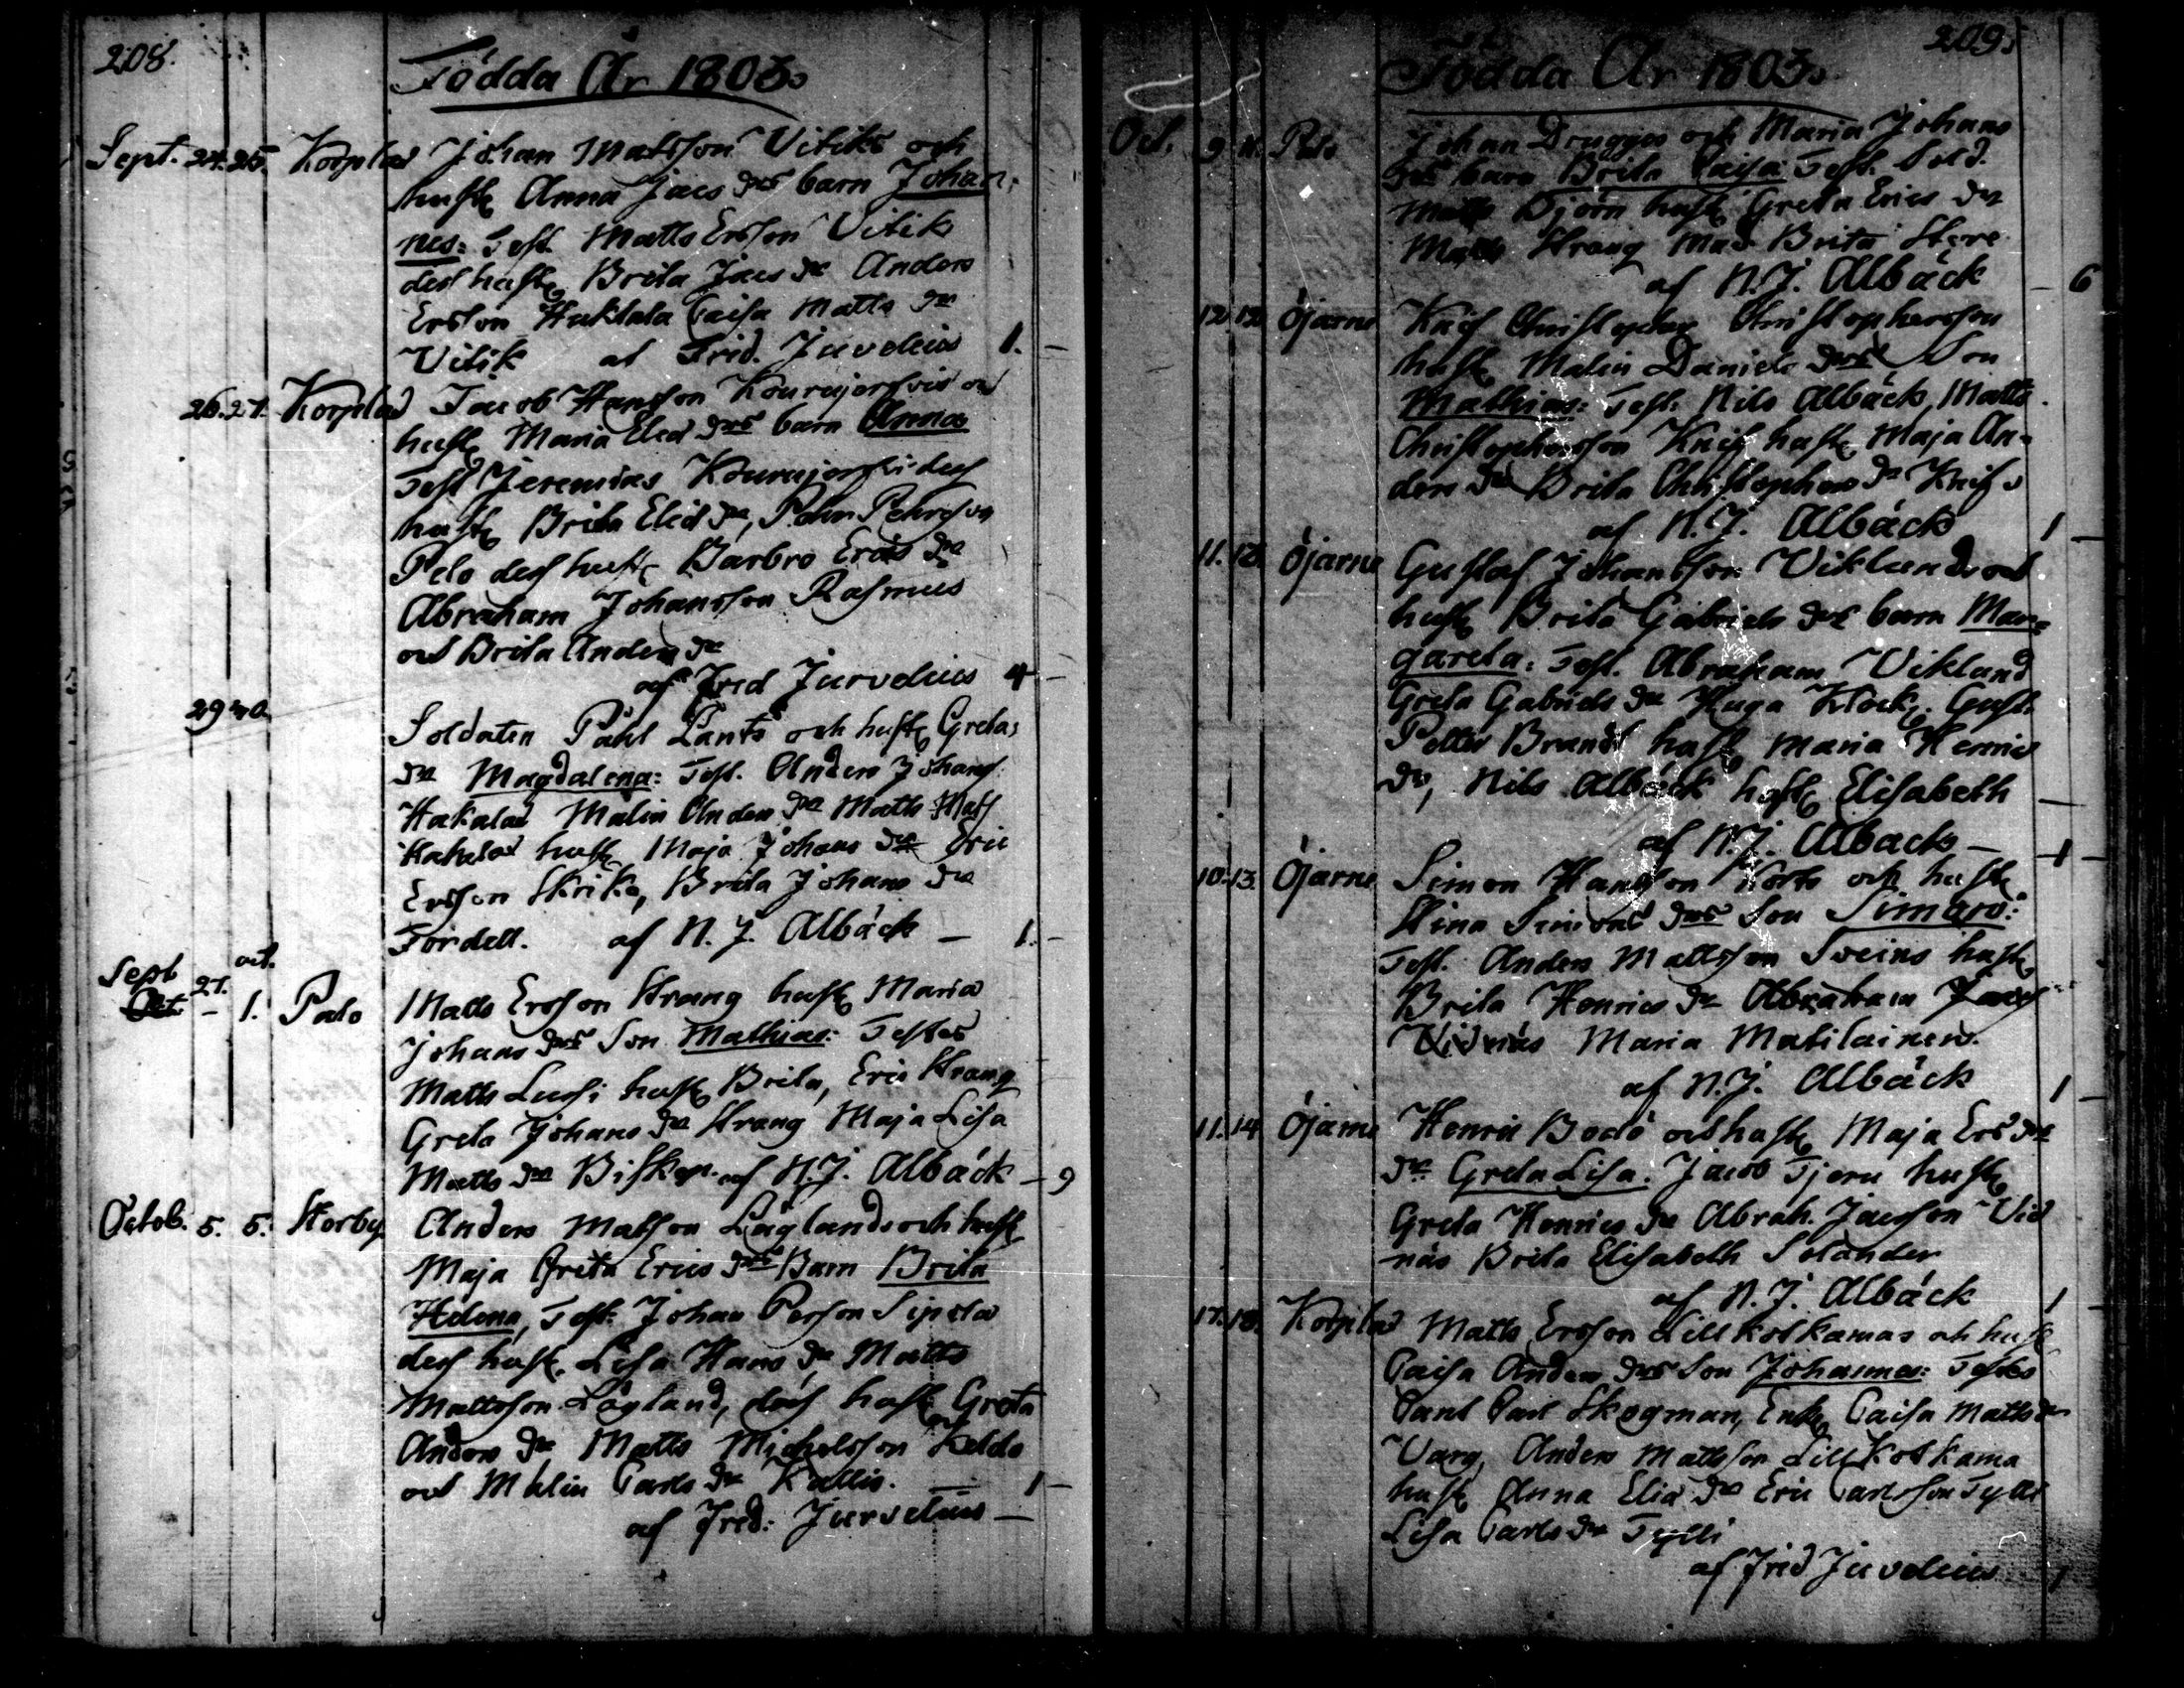 208.
Födda År 1803.
Sept. 24. 25. Korplax Johan Matsson Vitiks och
hust. Anna Jacs drs barn Johan-
nes: Test. Matts Ersson Vitik
dess hust. Brita Jacs dr Anders
Ersson Huktala Caisa Matts dr
Vitik af Frid. Juvelius 1.
26. 27. Korplax Jacob Hansson Kourujerfvis och
hust. Maria Elias drs barn Anna
Test Jeremias Kourujerfvi dess
hust. Brita Elias dr, Pehr Pehrsson
Pelo dess hust. Barbro Erics dr
Abraham Johansson Rasmus
och Brita Anders dr
af Fred Jurvelius 4
29 30. Soldaten Påhl Lants och hust. Greta
dr Magdalena: Test. Anders Johans.
Hakalax Malin Anders dr Matts Mats
Kakelax hust. Maja Johans dr Eric
Ersson Skrika, Brita Johans dr
Fordell. af N. J. Albäck – 1.
Sept 27. oct.
Oct. – 1. Palo Matts Ersson Strang hust. Maria
Johans drs Son Mathias: Testes
Matts Lussi hust. Brita, Eric Strang
Greta Johans dr Strang Maja Lisa
Matts dr Biskop. af N. J. Albäck – 9
Octob. 5. 5. Storby Anders Matsson Låglands och hust.
Maja Greta Erics drs Barn Brita
Helena, Test: Johan Persson Sipola
dess hust. Lisa Hans dr Matts
Mattsson Lågland, dess hust. Greta
Anders dr Matts Michelsson Keldo
och Malin Carls dr Kallis. – 1
af Fred: Jurvelius –
209.
Födda År 1803.
Oct. 9 11. Palo Johan Druggos och Maria Johans
drs barn Brita Caisa Test. Sold.
Matts Björn hust. Greta Erics dr
Matts Strang Brita Stare
af N. J. Albäck – 6
12 12 Öjarne Knif Christopher Christophersson
hust. Malin Daniels drs Son
Mathias: Test: Nils Albäck, Matts
Christophersson Knif hust. Maja An-
ders dr Brita Christophers dr Knif
af N. J. Albäck 1
11. 12. Öjarne Gustaf Johansson Viklunds och
hust. Brita Gabriels drs barn Mar-
gareta: Test. Abraham Viklund
Greta Gabriels dr Klock. Gust.
Petter Brandt hust. Maria Henrics
dr, Nils Albäck hust. Elisabeth
af N. J. Albäck – 1
10. 13. Öjarne Simon Hansson Korts och hust.
Stina Simons drs Son Simon:
Test. Anders Mattsson Sveins hust.
Brita Henrics dr Abraham Jacs
Vidnäs Maria Matilainen.
af N. J. Albäck 1
11. 14 Öjarne Henric Bodö och hust. Maja Ers drs
dr Greta Lisa. Jacob Tjern hust.
Greta Henrics dr Abrah. Jacsson Vid
näs Brita Elisabeth Solander
af N. J. Albäck 1
17. 18. Korplax Matts Ersson Lillkolkamas och hust.
Caisa Anders drs Son Johannes: Testes
Carl Skogman, Enk. Caisa Matts dr
Varg, Anders Mattsson Lillkolkama
hust. Anna Elia dr Eric Carlsson Tylli
Lisa Carls dr Tylli
af Frid Juvelius 1